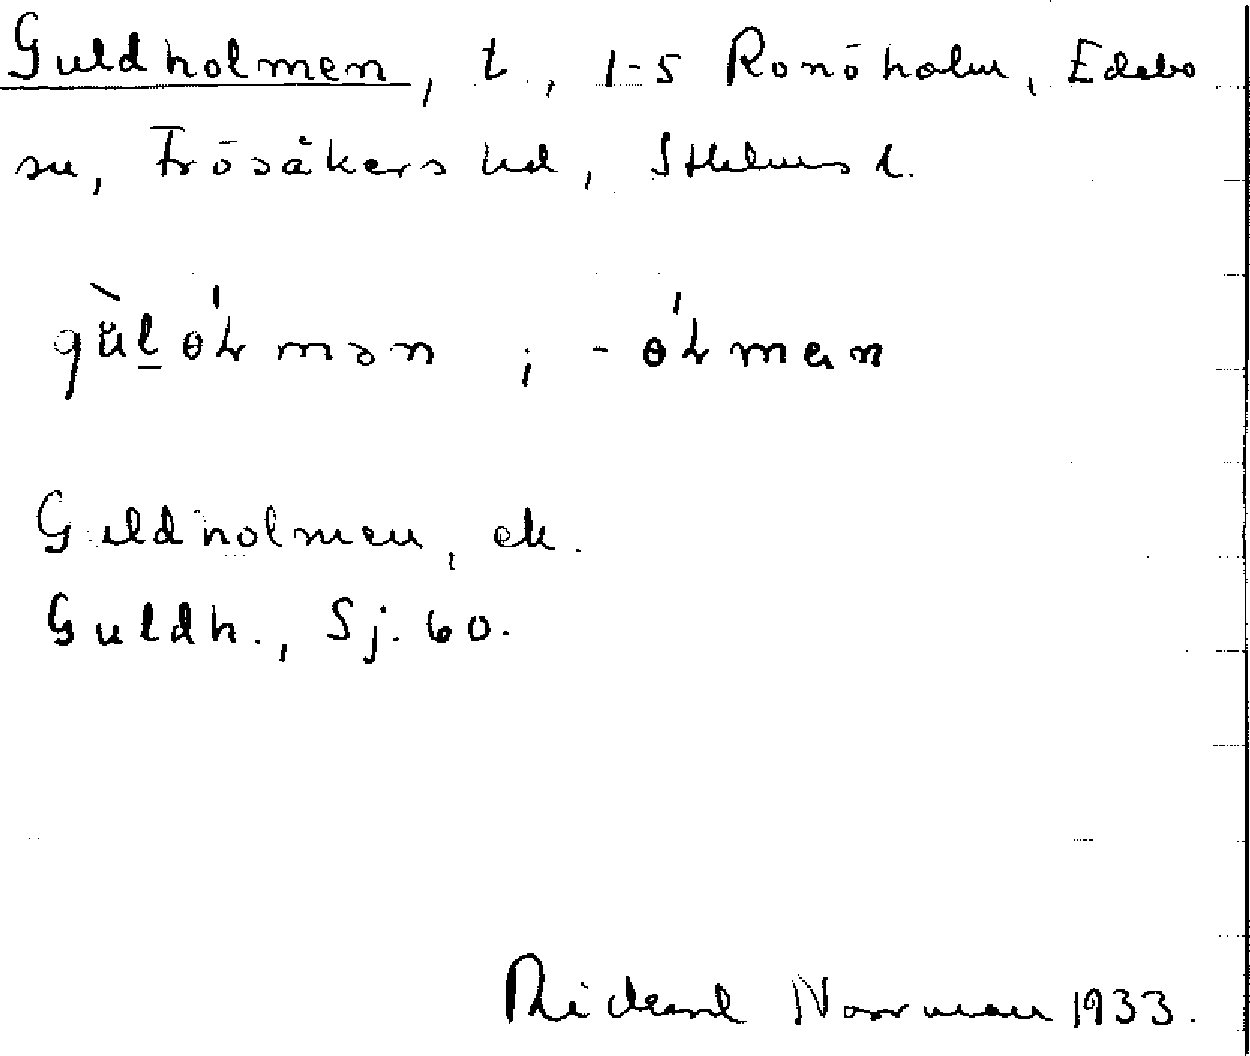 Guldholmen, t., 1-5 Ronöholm, Edebo
sn, Frösåkers hd, Sthlms l.
gùlɵ́ɫmən ; -ɵ́ɫmen
Guldholmen, ek.
Guldh., Sj. 60.
Rickard Norrman 1933.